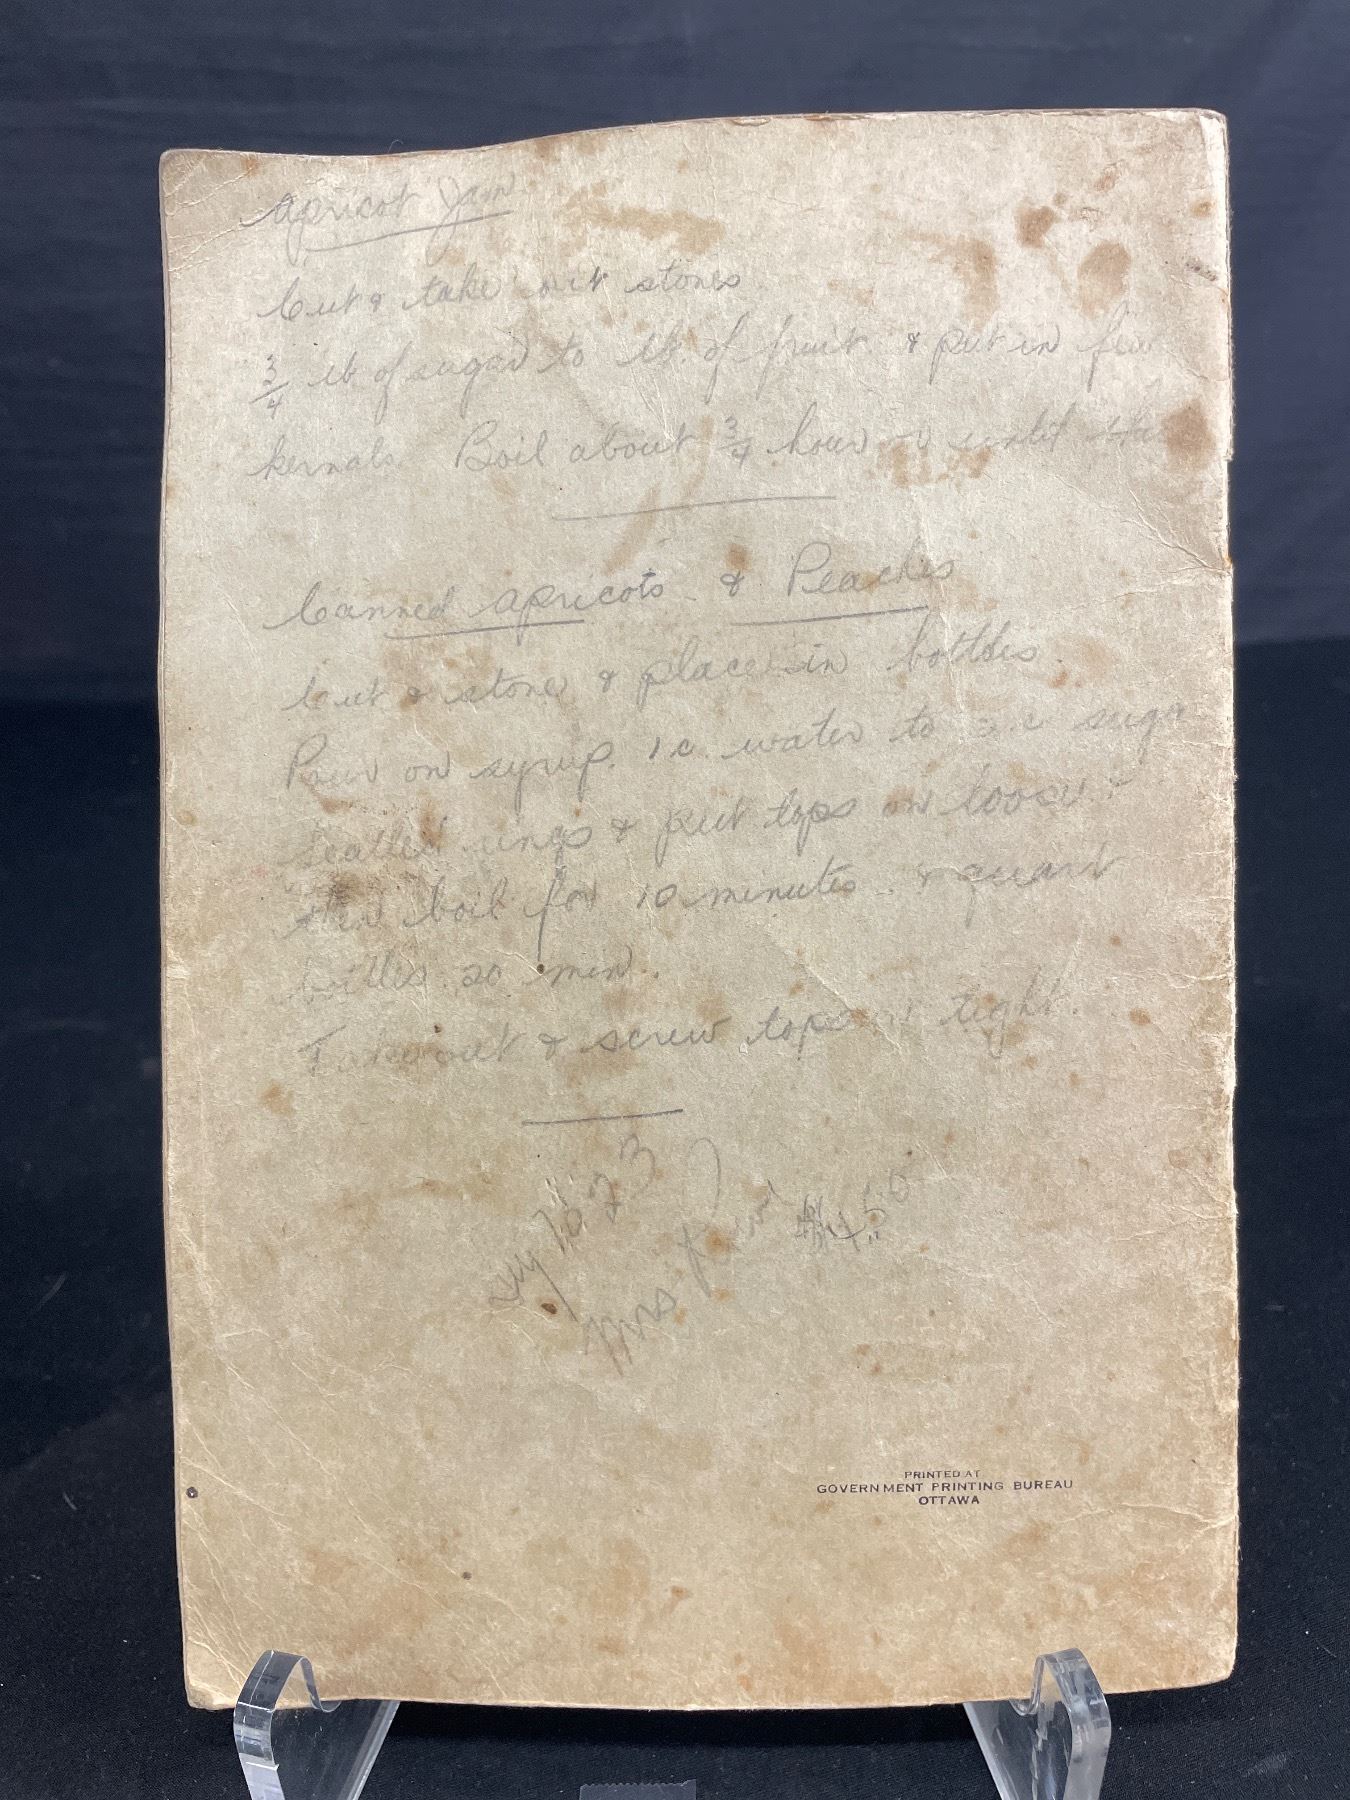 Apricot Jam
Cut & take out stones.
3/4 lb of sugar to lb. of fruit. & put in few
kernals. Boil about 3/4 hour until
Canned Apricots & Peaches
Cut & stone & place in bottles.
Pour on syrup. 1 c. water to c sugar
rings & put tops on loose
then boil for 10 minutes & quart
bottles 20 min.
Take out & screw tops on tight.
23
Mrs
PRINTED AT
GOVERNMENT PRINTING BUREAU
OTTAWA